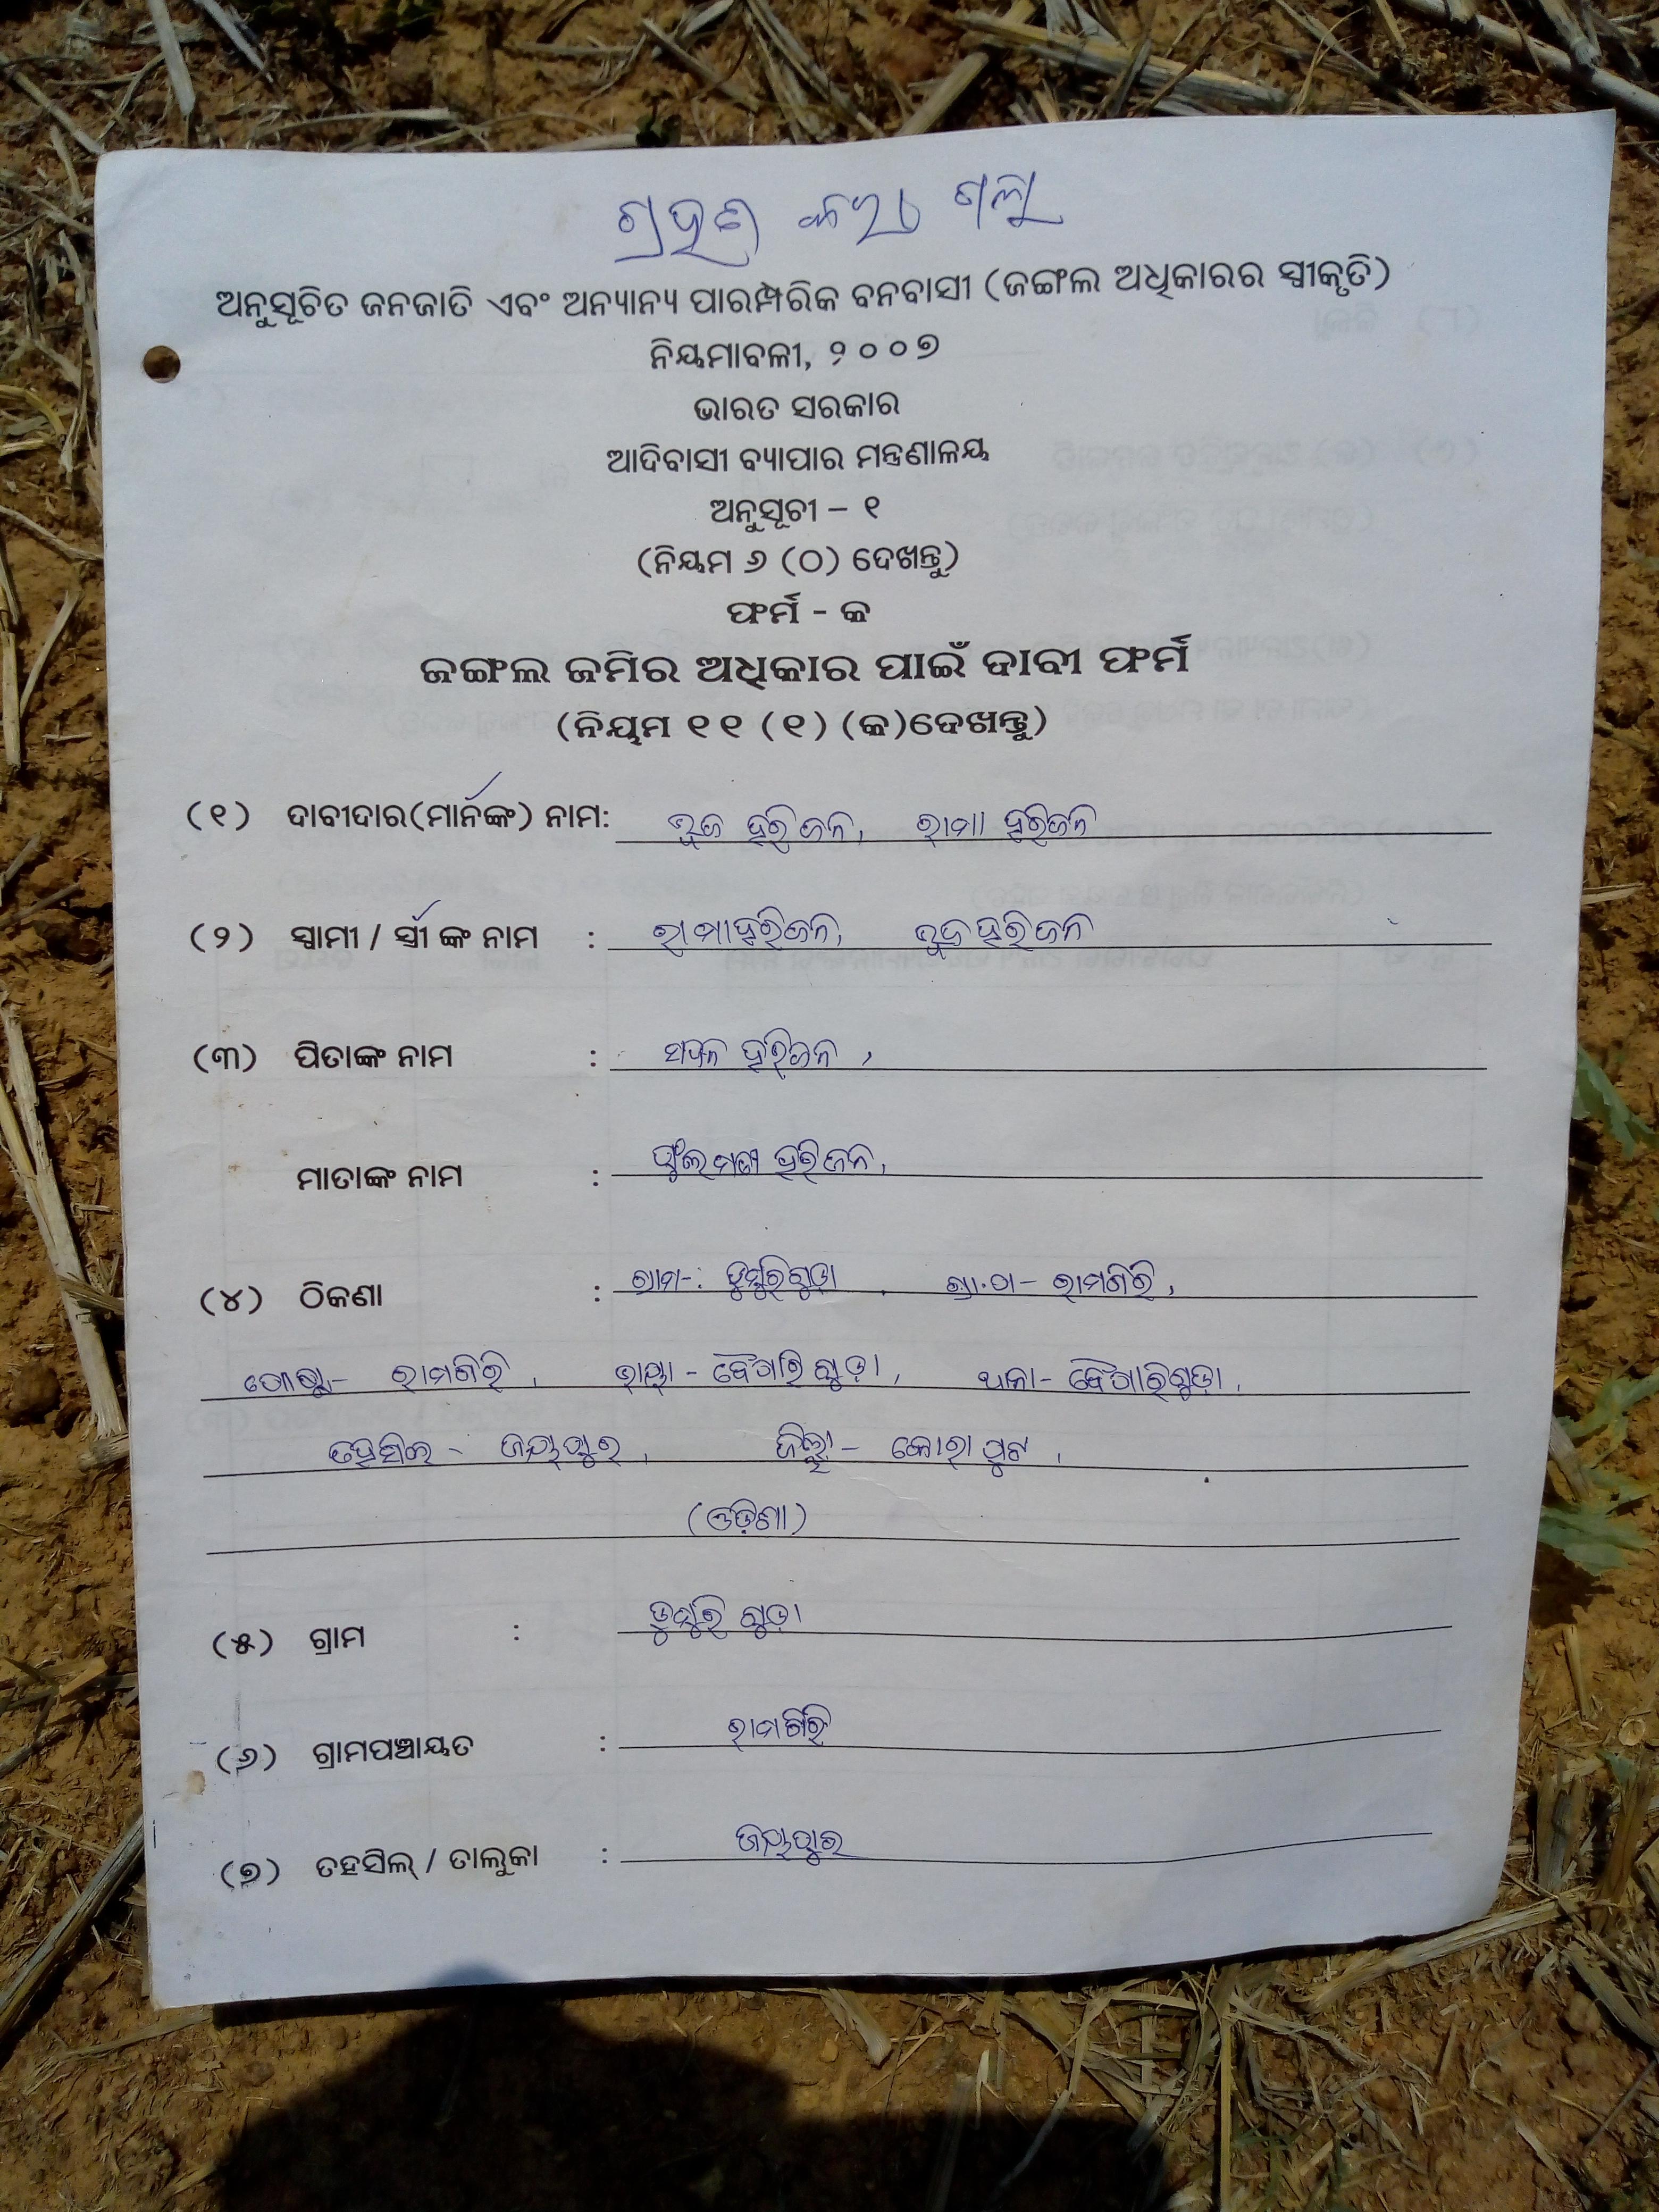 ଗ୍ରହଣ କରା ଗଲା
ଅନୁସୂଚିତ ଜନଜାତି ଏବଂ ଅନ୍ୟାନ୍ୟ ପାରମ୍ପରିକ ବନବାସୀ (ଜଙ୍ଗଲ ଅଧିକାରର ସ୍ୱୀକୃତି)
ନିୟମାବଳୀ, ୨୦୦୭
ଭାରତ ସରକାର
ଆଦିବାସୀ ବ୍ୟାପାର ମନ୍ତ୍ରଣାଳୟ
ଅନୁସୂଚୀ – ୧
(ନିୟମ ୬ (୦) ଦେଖନ୍ତୁ)
ଫର୍ମ - କ
ଜଙ୍ଗଲ ଜମିର ଅଧିକାର ପାଇଁ ଦାବୀ ଫର୍ମ
(ନିୟମ ୧୧ (୧) (କ)ଦେଖନ୍ତୁ)
(୧) ଦାବୀଦାର(ମାନଙ୍କ) ନାମ: ହରିଜନ, ରାମା ହରିଜନ
(୨) ସ୍ୱାମୀ / ସ୍ତ୍ରୀ ଙ୍କ ନାମ : ରାମା ହରିଜନ, ହରିଜନ
(୩) ପିତାଙ୍କ ନାମ : ହରିଜନ,
ମାତାଙ୍କ ନାମ : ହରିଜନ,
(୪) ଠିକଣା : ଗ୍ରାମ-: ଡୁମୁରିଗୁଡ଼ା, ଗ୍ରା.ପା - ରାମଗିରି,
ପୋଷ୍ଟ- ରାମଗିରି, ଭାୟା - ବୈପାରିଗୁଡ଼ା, ଥାନା - ବୈପାରିଗୁଡ଼ା,
ତହସିଲ - ଜୟପୁର, ଜିଲ୍ଲା - କୋରାପୁଟ,
(ଓଡ଼ିଶା)
(୫) ଗ୍ରାମ : ଡୁମୁରି ଗୁଡ଼ା
(୬) ଗ୍ରାମପଞ୍ଚାୟତ : ରାମଗିରି
(୭) ତହସିଲ୍ / ତାଲୁକା : ଜୟପୁର